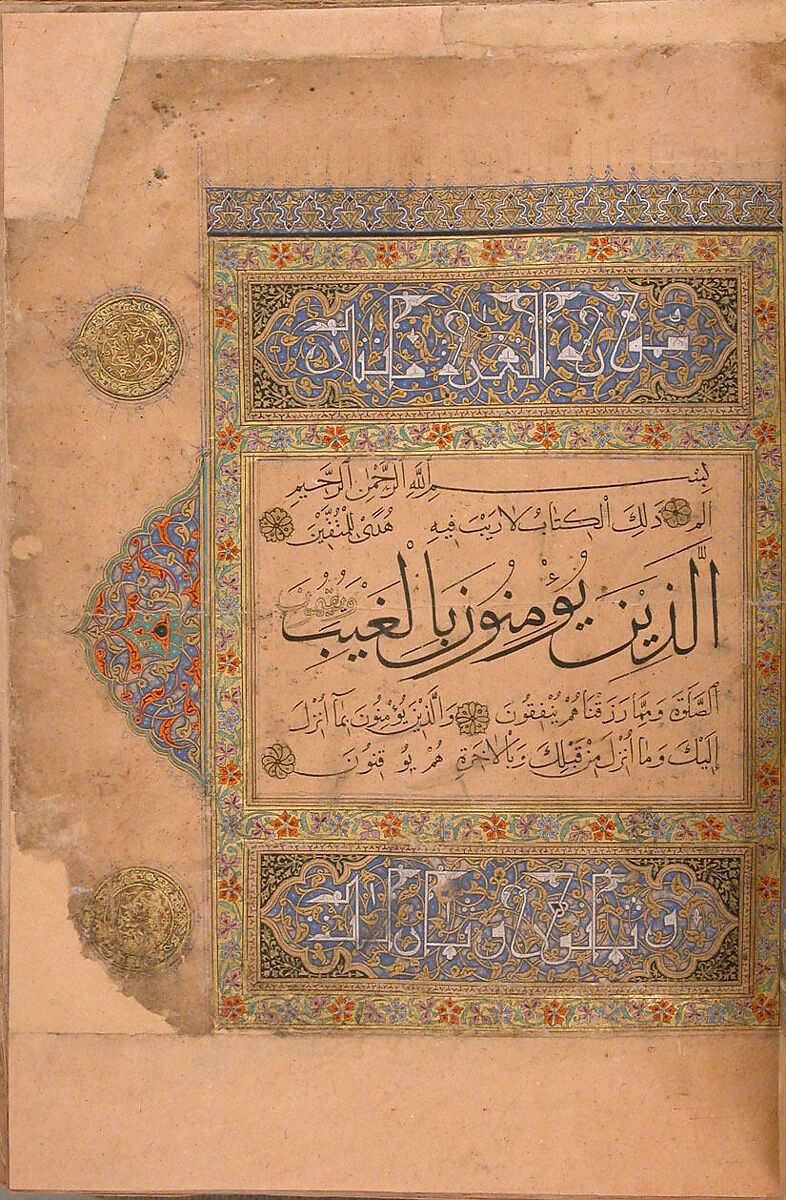 سورة البقرة مائتان
بِسْمِ اللَّهِ الرَّحْمٰنِ الرَّحِيمِ
الم ذَلِكَ الْكِتَابُ لَا رَيْبَ فِيهِ هُدًى لِلْمُتَّقِينَ
الَّذِينَ يُؤْمِنُونَ بِالْغَيْبِ وَيُقِيمُونَ
الصَّلٰوةَ وَمِمَّا رَزَقْنَاهُمْ يُنْفِقُونَ وَالَّذِينَ يُؤْمِنُونَ بِمَا أُنْزِلَ
إِلَيْكَ وَمَا أُنْزِلَ مِنْ قَبْلِكَ وَبِالْآخِرَةِ هُمْ يُوقِنُونَ